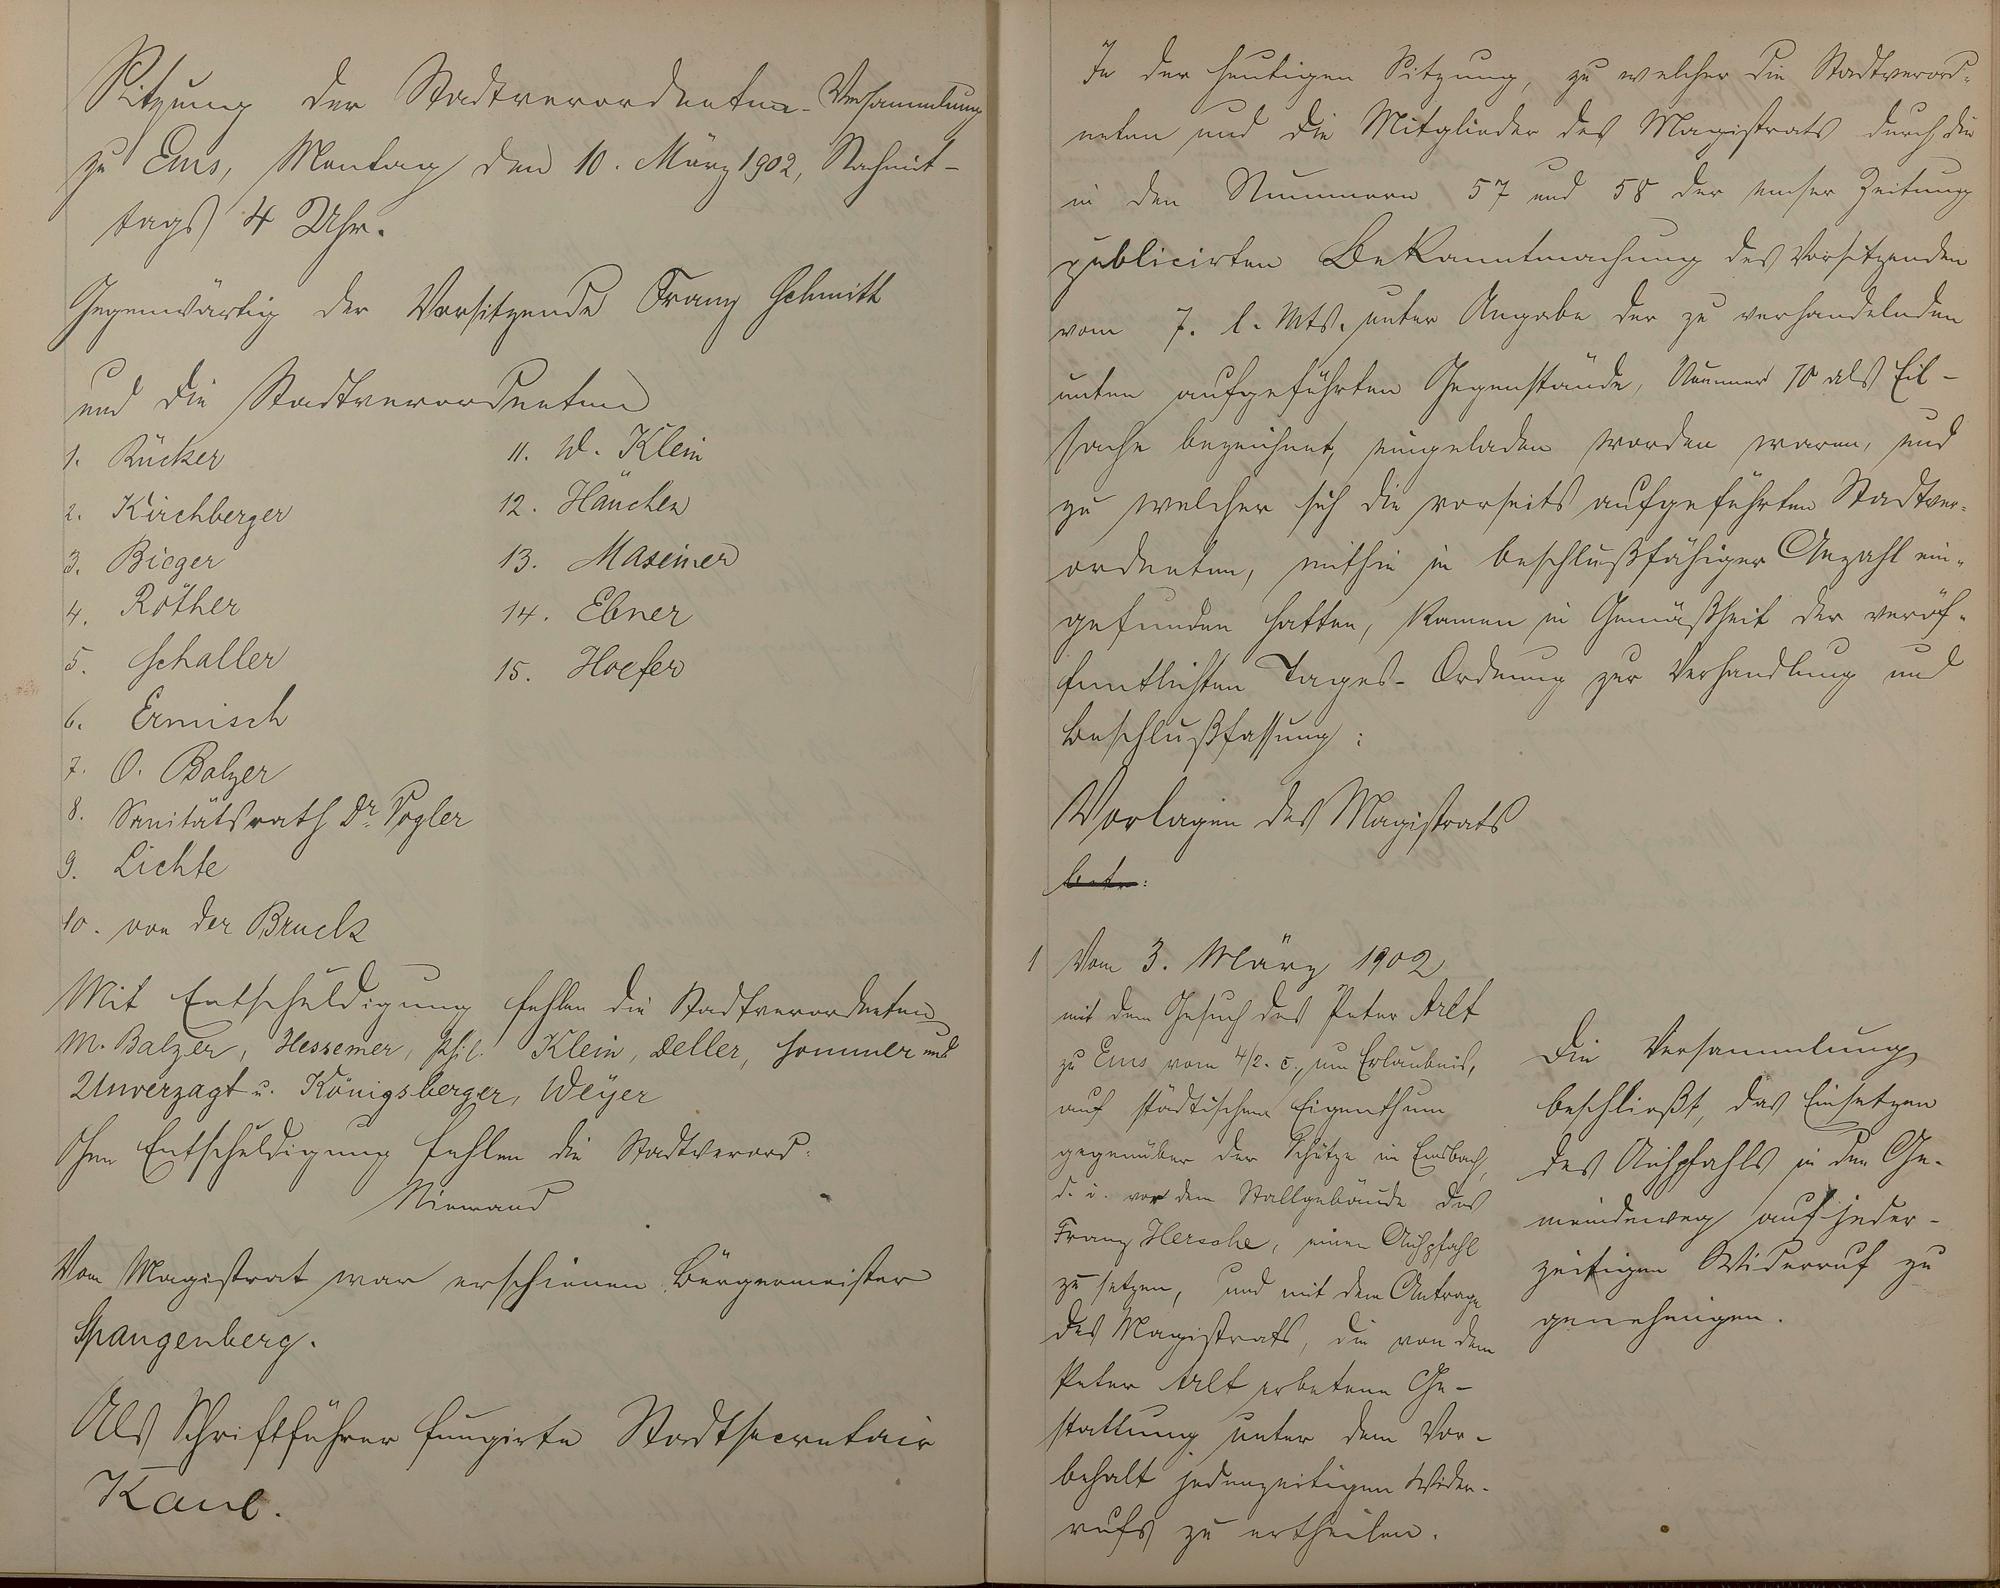 Sitzung der Stadtverordneten-Versammlung
zu Ems, Montag den 10. März 1902, Nachmit-
tags 4 Uhr.
Gegenwärtig der Vorsitzende Franz Schmitt
und die Stadtverordneten
1. Rücker
2. Kirchberger
3. Bieger
4. Röther
5. Schaller
6. Ermisch
7. O. Balzer
8. Sanitätsrath Dr. Vogler
9. Lichte
10. von der Bruck
11. W. Klein
12. Hänchen
13. Maxeiner
14. Ebner
15. Hoefer
Mit Entschuldigung fehlen die Stadtverordneten
M. Balzer, Hessemer, Phil. Klein, Deller, Sommer und
Unverzagt u. Königsberger, Weyer
Ohne Entschuldigung fehlen die Stadtverord:
Niemand
Vom Magistrat war erschienen Bürgermeister
Spangenberg.
Als Schriftführer fungirte Stadtsecretair
Kaul.
In der heutigen Sitzung, zu welcher die Stadtverord-
neten und die Mitglieder des Magistrats durch die
in den Nummern 57 und 58 der Emser Zeitung
publicirten Bekanntmachung des Vorsitzenden
vom 7. l. Mts. unter Angabe der zu verhandelnden
unten aufgeführten Gegenstände, Nummer 10 als Eil-
sache bezeichnet, eingeladen worden waren, und
zu welcher sich die vorseits aufgeführten Stadtver-
ordneten, mithin in beschlußfähiger Anzahl ein-
gefunden hatten, kamen in Gemäßheit der veröf-
fentlichten Tages-Ordnung zur Verhandlung und
Beschlußfassung:
Vorlagen des Magistrats
betr:
1 Vom 3. März 1902
mit dem Gesuch des Peter Arlt
zu Ems vom 4/2. c., um Erlaubnis,
auf städtischem Eigenthum
gegenüber der Schütze im Emsbach,
d. i. vor dem Stallgebäude des
Franz Hersche, einen Aichpfahl
zu setzen, und mit dem Antrage
des Magistrats, die von dem
Peter Arlt erbetene Ge-
stattung unter dem Vor-
behalt jederzeitigen Wider-
rufs zu ertheilen.
Die Versammlung
beschließt, das Einsetzen
des Aichpfahls in den Ge-
meindeweg auf jeder-
zeitigen Widerruf zu
genehmigen.